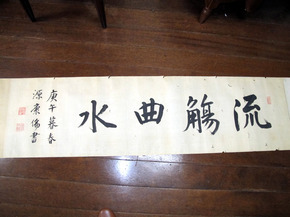 流觴曲水
庚午暮春
源康儒書